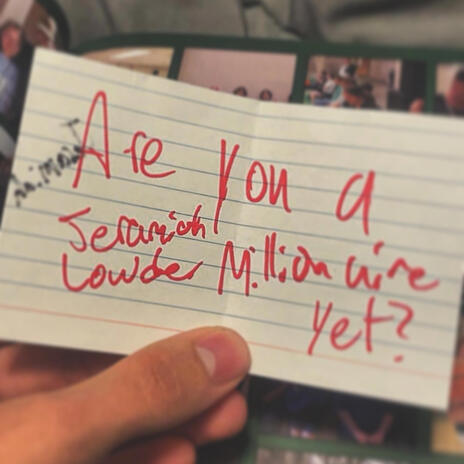 Are you a
Jeramiah
Lowder Millionaire
yet?